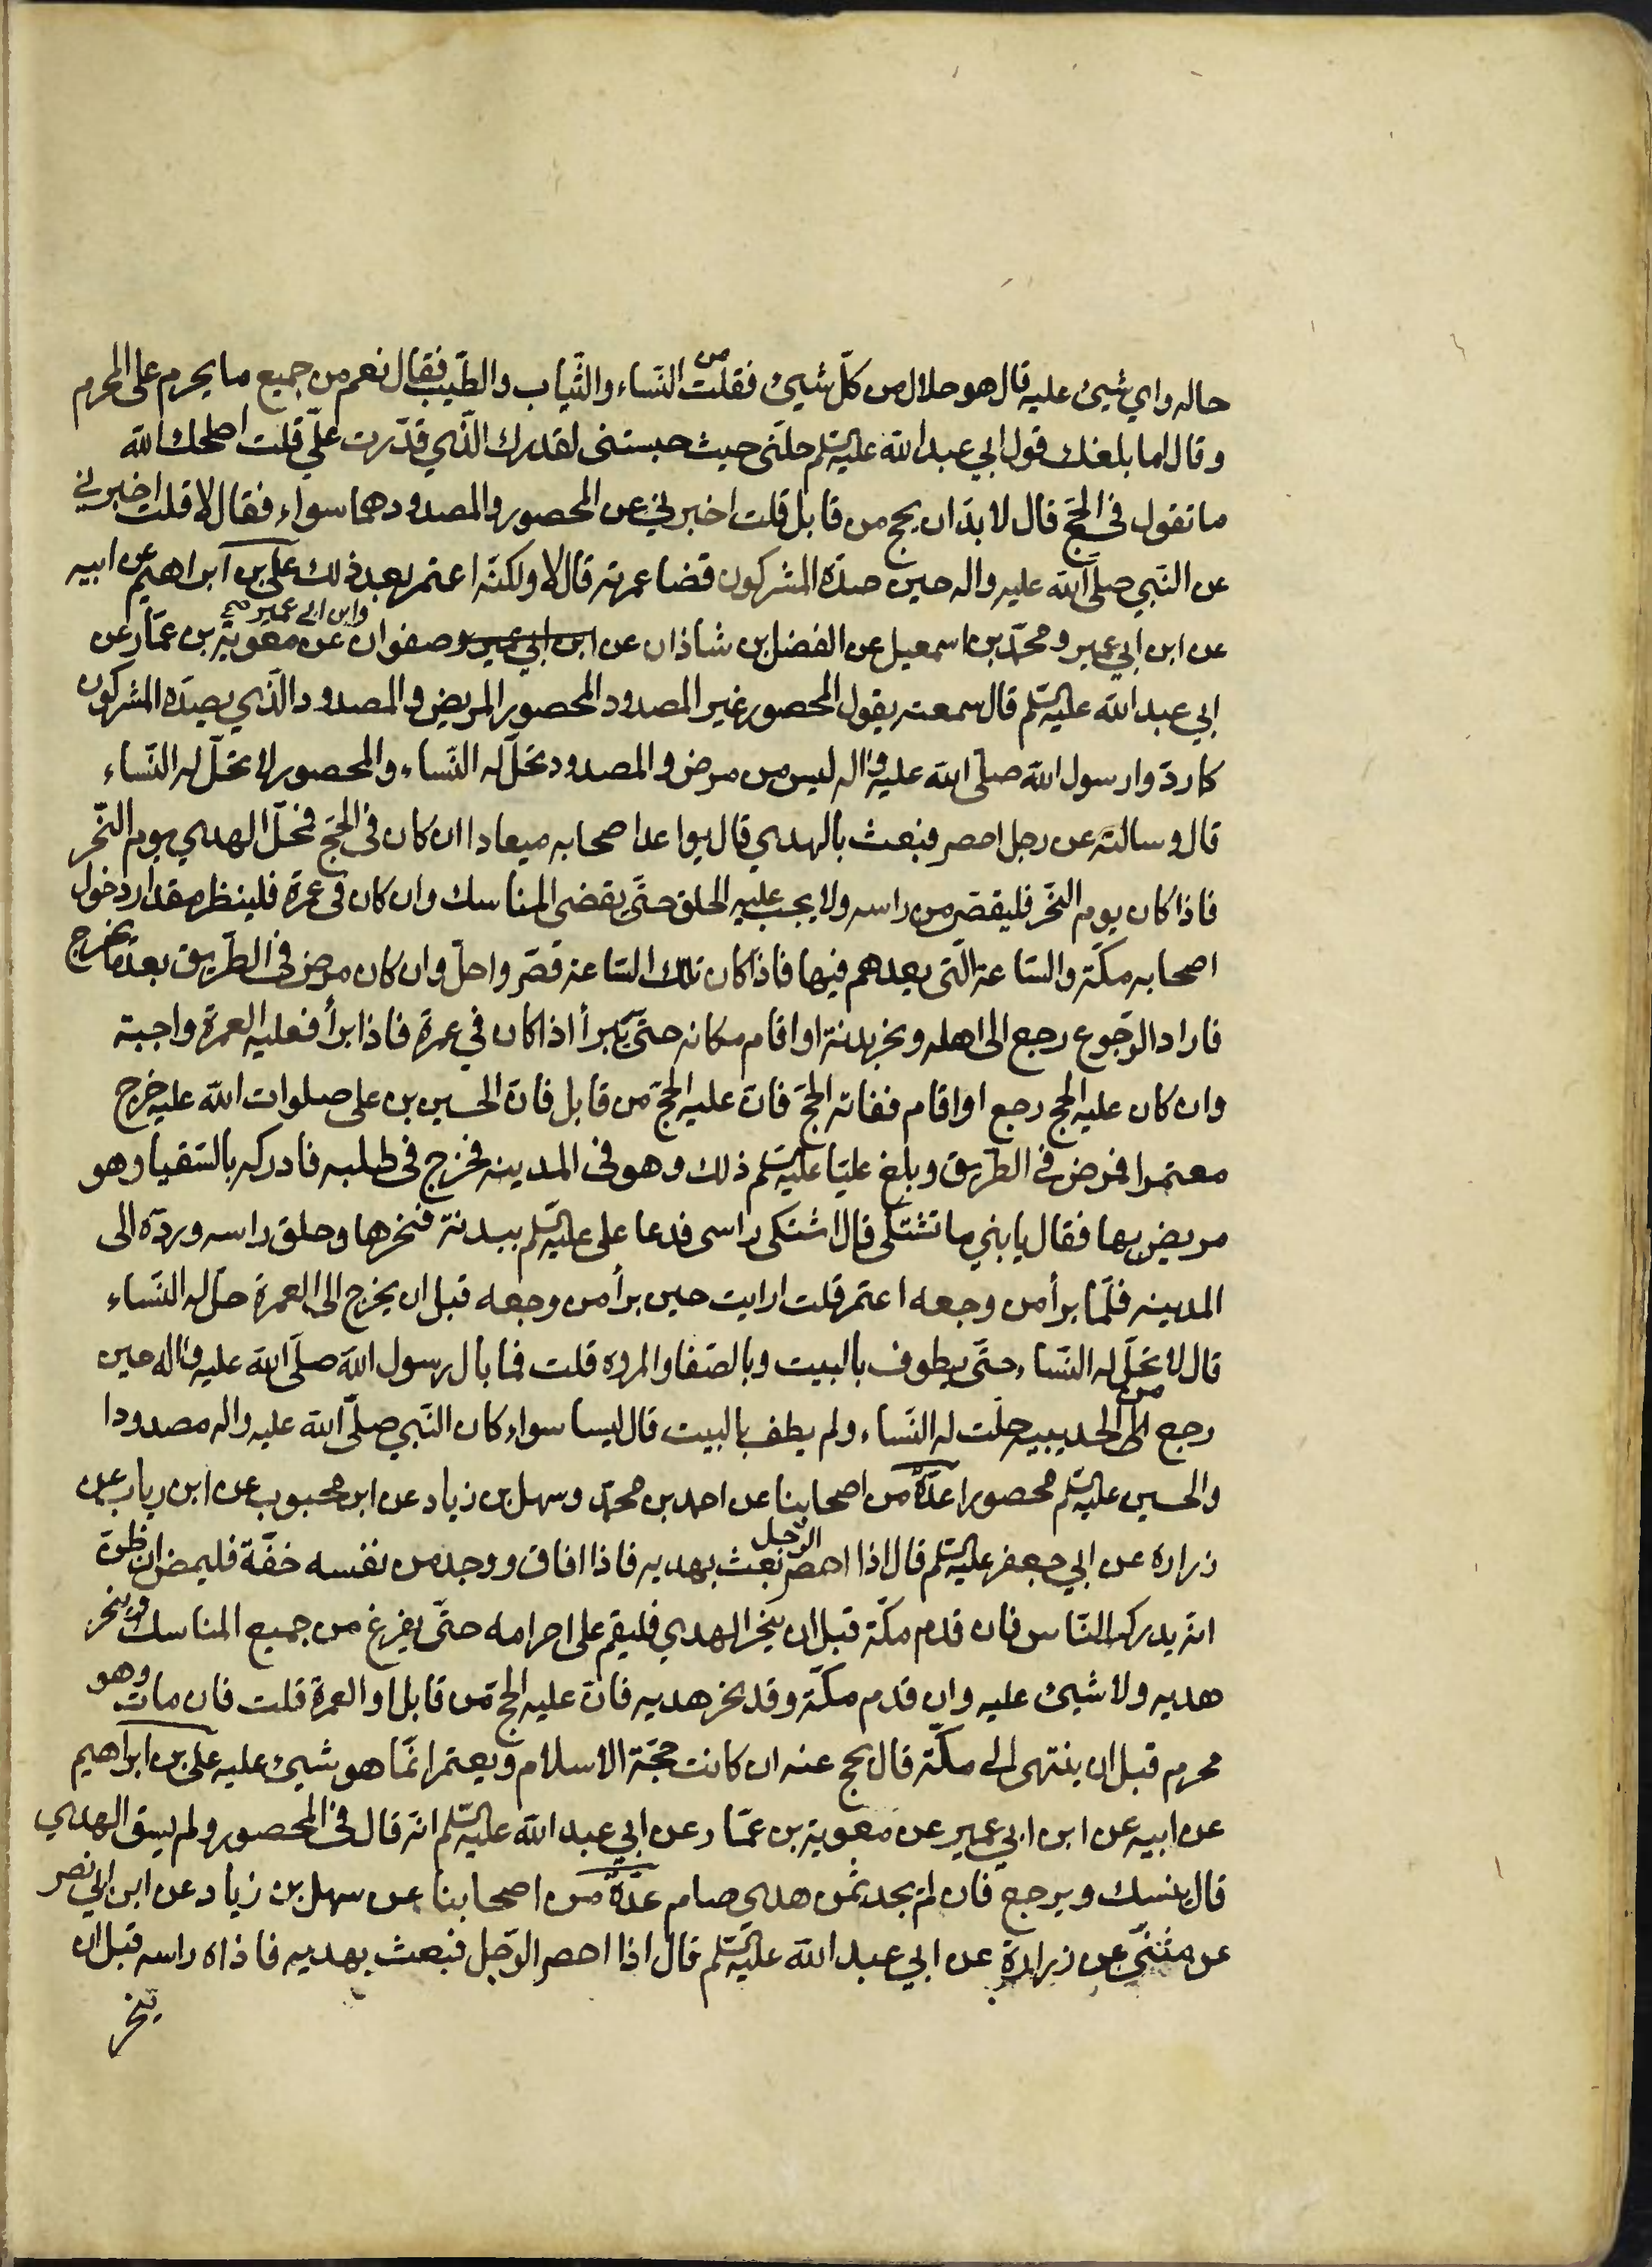 حاله واي شيئ عليه قال هو حلال من كلّ شيئ فقلت من النّساء والثّياب والطّيب فقال نعم من جميع ما يحرم على المحرم
وقال اما بلغك قول ابي عبد الله عليه السّلم حلّنى حيث حبستنى لقدرك الّذي قدّرت علّي قلت اصلحك الله
ما تقول في الحجّ قال لا بدّ ان يحج من قابل قلت اخبرني عن المحصور والمصدود هما سواء فقال لا قلت اخبرني
عن النّبي صلّى الله عليه واله حين صدّه المشركون قضا عمرته قال لا ولكنّه اعتمر بعد ذلك علي بن ابراهيم عن ابيه
عن ابن ابي عمير ومحمّد بن اسمعيل عن الفضل بن شاذان عن ابن ابي عمير وصفوان وابن ابي عمير صح عن معوية بن عمّار عن
ابي عبد الله عليه السّلم قال سمعته يقول المحصور غير المصدود المحصور المريض والمصدود الّذي يصدّه المشركون
كما ردّوا رسول الله صلّى الله عليه واله ليس من مرض والمصدود تحلّ له النّساء والمحصور لا تحلّ له النّساء
قال وسالته عن رجل احصر فبعث بالهدي قال يواعد اصحابه ميعادا ان كان في الحجّ فمحلّ الهدي يوم النّحر
فاذا كان يوم النّحر فليقصّر من راسه ولا يجب عليه الحلق حتّى يقضى المناسك وان كان فى عمرة فلينظر مقدار دخول
اصحابه مكّة والسّاعة الّتى يعدهم فيها فاذا كان تلك السّاعة قصّر واحلّ وان كان مرض في الطّريق بعد ما يخرج
فاراد الرّجوع رجع الى اهله ونحر بدنة او اقام مكانه حتّى يبرأ اذا كان في عمرة فاذا برأ فعليه العمرة واجبة
وان كان عليه الحج رجع او اقام ففاته الحجّ فانّ عليه الحجّ من قابل فانّ الحسين بن على صلوات الله عليه خرج
معتمرا فمرض في الطّريق وبلغ عليّا عليه السّلم ذلك وهو فى المدينه فخرج فى طلبه فادركه بالسّقيا وهو
مريض بها فقال يا بني ما تشتكى قال اشتكى راسى فدعا على عليه السّلم ببدنة فنحرها وحلق راسه وردّه الى
المدينه فلمّا برأ من وجعه اعتمر قلت ارايت حين برأ من وجعه قبل ان يخرج الى العمرة حلّ له النّساء
قال لا تحلّ له النّساء حتّى يطوف بالبيت وبالصّفا والمروه قلت فما بال رسول الله صلّى الله عليه واله حين
رجع من الحديبيه حلّت له النّساء ولم يطف بالبيت قال ليسا سواء كان النّبي صلّى الله عليه واله مصدودا
والحسين عليه السّلم محصورا عدّة من اصحابنا عن احمد بن محمّد وسهل بن زياد عن ابن محبوب عن ابن رياب عن
زراره عن ابي جعفر عليه السّلم قال اذا احصر الرّجل بعث بهديه فاذا افاق ووجد من نفسه خفّة فليمض ان ظنّ
انّه يدرك النّاس فان قدم مكّة قبل ان ينحر الهدي فليقم على احرامه حتّى يفرغ من جميع المناسك وينحر
هديه ولا شيئ عليه وان قدم مكّة وقد نحر هديه فانّ عليه الحجّ من قابل او العمرة قلت فان مات وهو
محرم قبل ان ينتهى الى مكّة قال يحج عنه ان كانت حجّة الاسلام ويعتمر انّما هو شيئ عليه على بن ابراهيم
عن ابيه عن ابن ابي عمير عن معوية بن عمّار عن ابي عبد الله عليه السّلم انّه قال في المحصور ولم يسق الهدي
قال ينسك ويرجع فان لم يجد ثمن هدي صام عدّة من اصحابنا عن سهل بن زياد عن ابن ابي نصر
عن مثنّى عن زرارة عن ابي عبد الله عليه السّلم قال اذا احصر الرّجل فبعث بهديه فاذاه راسه قبل ان
ينحر